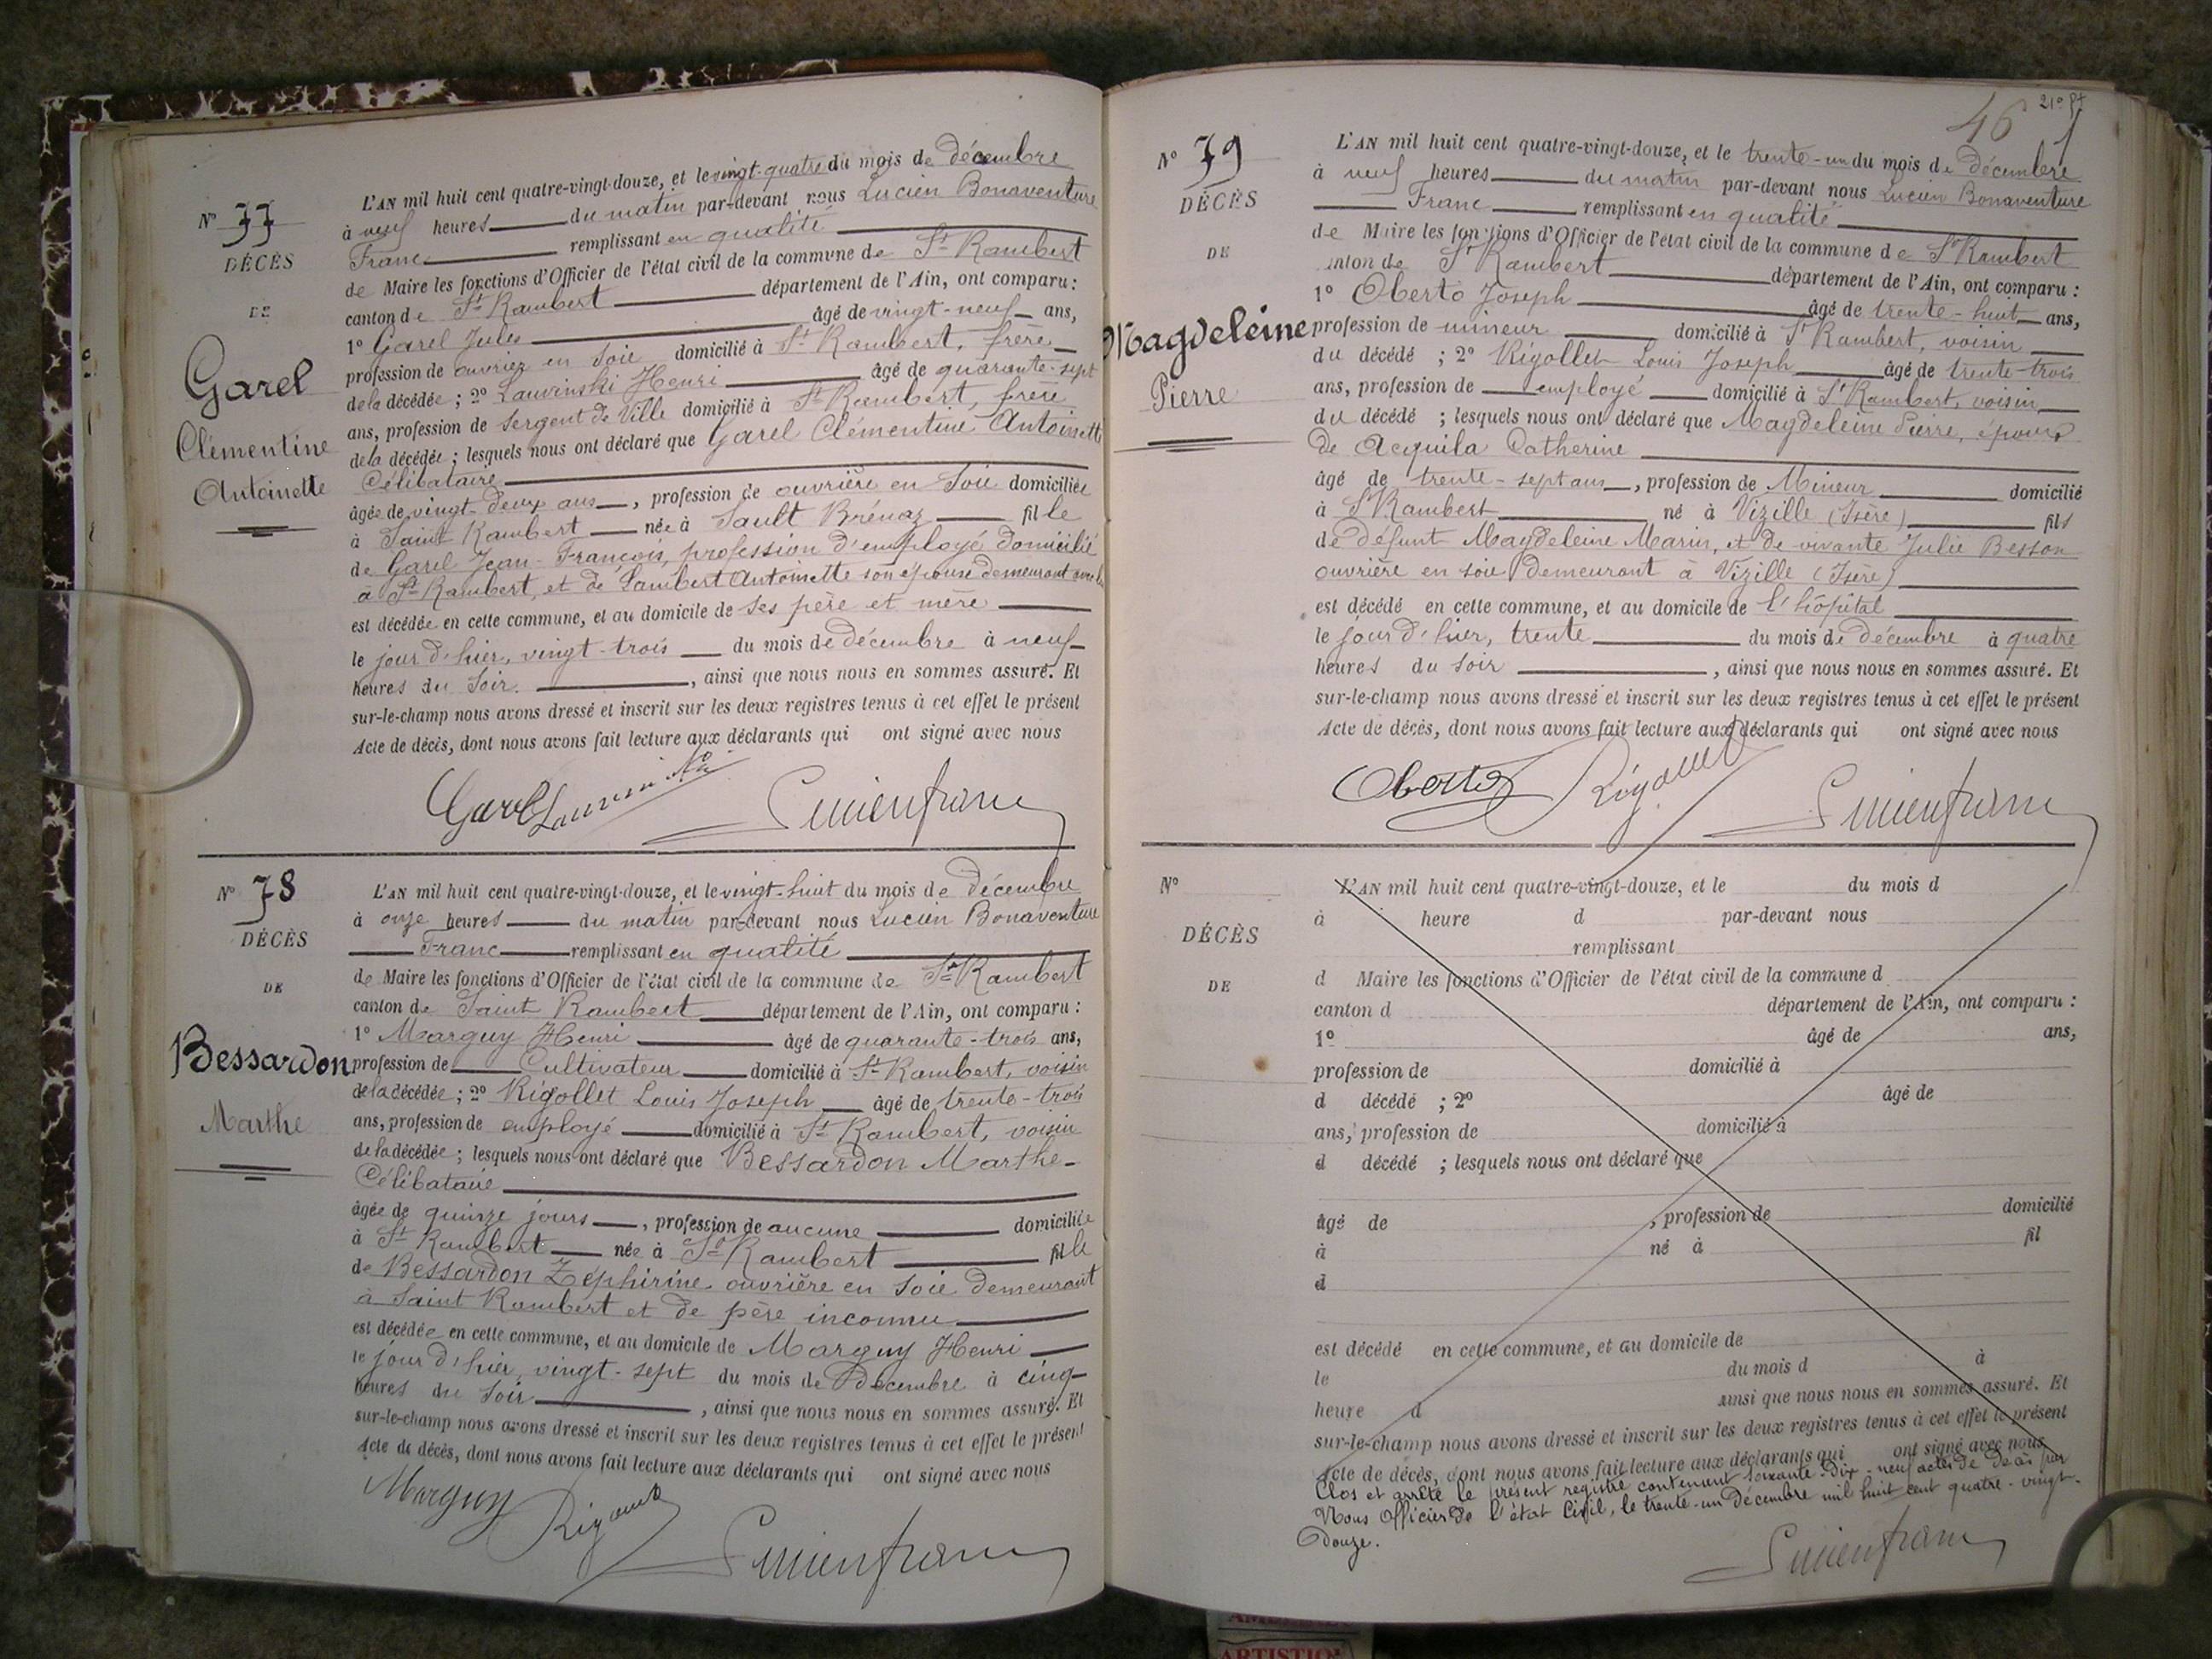 N° 77
DÉCÈS
DE
Garel
Clémentine
Antoinette
L'AN mil huit cent quatre-vingt-douze, et le vingt-quatre du mois de Décembre
à neuf heures du matin par-devant nous Lucien Bonaventure
Franc remplissant en qualité
de Maire les fonctions d'Officier de l'état civil de la commune de St Rambert
canton de St Rambert département de l'Ain, ont comparu :
1° Garel Jules âgé de vingt-neuf ans,
profession de ouvrier en soie domicilié à St Rambert, frère
de la décédée ; 2° Lauvinski Henri âgé de quarante-sept
ans, profession de Sergent de Ville domicilié à St Rambert, frère
de la décédée ; lesquels nous ont déclaré que Garel Clémentine Antoinette
Célibataire
âgée de vingt-deux ans, profession de ouvrière en Soie domiciliée
à Saint Rambert née à Sault Brénaz fille
de Garel Jean-François, profession d'employé domicilié
à St Rambert, et de Lambert Antoinette son épouse demeurant avec lui
est décédée en cette commune, et au domicile de ses père et mère
le jour d'hier, vingt-trois du mois de décembre à neuf
heures du Soir, ainsi que nous nous en sommes assuré. Et
sur-le-champ nous avons dressé et inscrit sur les deux registres tenus à cet effet le présent
Acte de décès, dont nous avons fait lecture aux déclarants qui ont signé avec nous
Garel Lucienfranc
N° 78
DÉCÈS
DE
Bessardon
Marthe
L'AN mil huit cent quatre-vingt-douze, et le vingt-huit du mois de décembre
à onze heures du matin par-devant nous Lucien Bonaventure
Franc remplissant en qualité
de Maire les fonctions d'Officier de l'état civil de la commune de St Rambert
canton de Saint Rambert département de l'Ain, ont comparu :
1° Marguy Henri âgé de quarante-trois ans,
profession de Cultivateur domicilié à St Rambert, voisin
de la décédée ; 2° Rigollet Louis Joseph âgé de trente-trois
ans, profession de employé domicilié à St Rambert, voisin
de la décédée ; lesquels nous ont déclaré que Bessardon Marthe
Célibataire
âgée de quinze jours, profession de aucune domiciliée
à St Rambert née à St Rambert fille
de Bessardon Zéphirine ouvrière en Soie demeurant
à Saint Rambert et de père inconnu
est décédée en cette commune, et au domicile de Marguy Henri
le jour d'hier, vingt-sept du mois de Décembre à cinq
heures du Soir, ainsi que nous nous en sommes assuré. Et
sur-le-champ nous avons dressé et inscrit sur les deux registres tenus à cet effet le présent
Acte de décès, dont nous avons fait lecture aux déclarants qui ont signé avec nous
Marguy Rigollet Lucienfranc
46
N° 79
DÉCÈS
DE
Magdeleine
Pierre
L'AN mil huit cent quatre-vingt-douze, et le trente-un du mois de Décembre
à neuf heures du matin par-devant nous Lucien Bonaventure
Franc remplissant en qualité
de Maire les fonctions d'Officier de l'état civil de la commune de St Rambert
canton de St Rambert département de l'Ain, ont comparu :
1° Oberto Joseph âgé de trente-huit ans,
profession de mineur domicilié à St Rambert, voisin
du décédé ; 2° Rigollet Louis Joseph âgé de trente-trois
ans, profession de employé domicilié à St Rambert, voisin
du décédé ; lesquels nous ont déclaré que Magdeleine Pierre, époux
de Acquila Catherine
âgé de trente-sept ans, profession de Mineur domicilié
à St Rambert né à Vizille (Isère) fils
de défunt Magdeleine Marin, et de vivante Julie Besson
ouvrière en soie demeurant à Vizille (Isère)
est décédé en cette commune, et au domicile de l'hôpital
le jour d'hier, trente du mois de décembre à quatre
heures du soir, ainsi que nous nous en sommes assuré. Et
sur-le-champ nous avons dressé et inscrit sur les deux registres tenus à cet effet le présent
Acte de décès, dont nous avons fait lecture aux déclarants qui ont signé avec nous
Oberto Rigollet Lucienfranc
N°
DÉCÈS
DE
L'AN mil huit cent quatre-vingt-douze, et le du mois d
à heure d par-devant nous
remplissant
d Maire les fonctions d'Officier de l'état civil de la commune d
canton d département de l'Ain, ont comparu :
1° âgé de ans,
profession de domicilié à
d décédé ; 2° âgé de
ans, profession de domicilié à
d décédé ; lesquels nous ont déclaré que
âgé de , profession de domicilié
à né à fil
d
est décédé en cette commune, et au domicile de
le du mois d à
heure d ainsi que nous nous en sommes assuré. Et
sur-le-champ nous avons dressé et inscrit sur les deux registres tenus à cet effet le présent
Acte de décès, dont nous avons fait lecture aux déclarants qui ont signé avec nous
Clos et arrêté le présent registre contenant soixante-dix-neuf actes de décès par
Nous Officier de l'état Civil, le trente-un Décembre mil huit cent quatre-vingt-
Douze.
Lucienfranc
ARTISTIQ